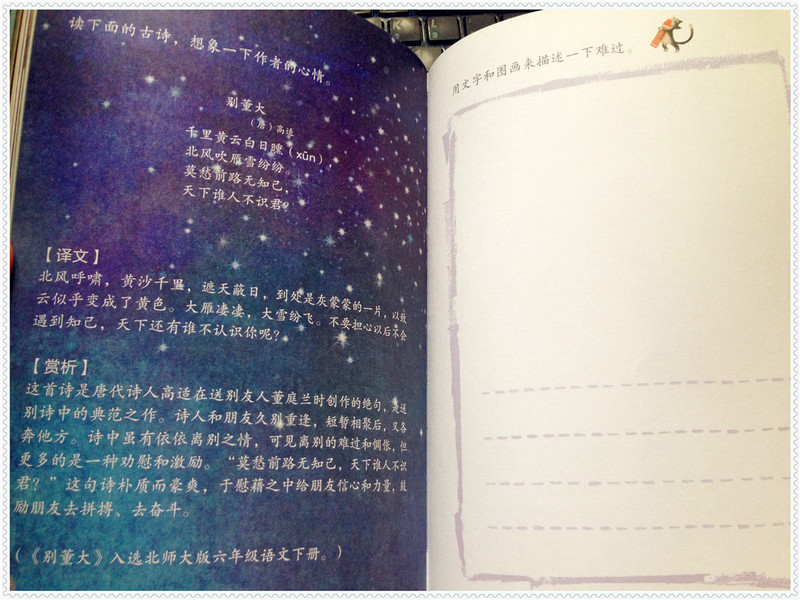 读下面的古诗，想象一下作者的心情。
别董大
（唐）高适
千里黄云白日曛（xūn），
北风吹雁雪纷纷。
莫愁前路无知己，
天下谁人不识君？
【译文】
北风呼啸，黄沙千里，遮天蔽日，到处是灰蒙蒙的一片，以致
云似乎变成了黄色。大雁凄凄，大雪纷飞。不要担心以后不会
遇到知己，天下还有谁不认识你呢？
【赏析】
这首诗是唐代诗人高适在送别友人董庭兰时创作的绝句，是送
别诗中的典范之作。诗人和朋友久别重逢，短暂相聚后，又各
奔他方。诗中虽有依依离别之情，可见离别的难过和惆怅，但
更多的是一种劝慰和激励。“莫愁前路无知己，天下谁人不识
君？”这句诗朴质而豪爽，于慰藉之中给朋友信心和力量，鼓
励朋友去拼搏、去奋斗。
（《别董大》入选北师大版六年级语文下册。）
用文字和图画来描述一下难过。